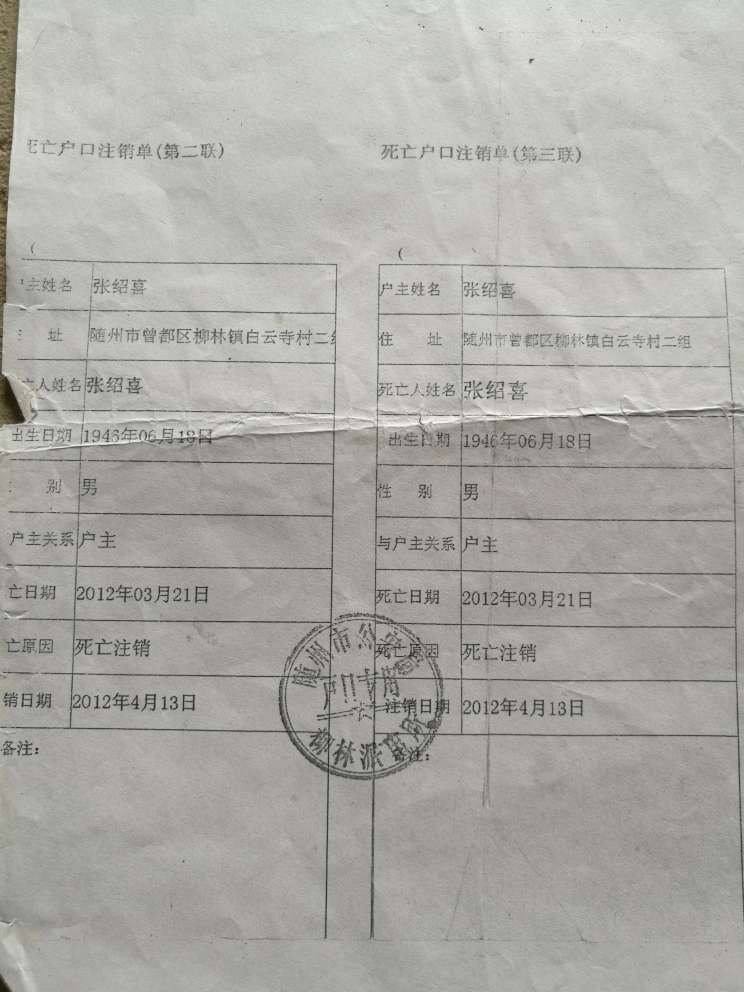 死亡户口注销单(第二联)
(
户主姓名 张绍喜
址 随州市曾都区柳林镇白云寺村二组
亡人姓名 张绍喜
出生日期 1946年06月18日
别 男
户主关系 户主
亡日期 2012年03月21日
亡原因 死亡注销
销日期 2012年4月13日
备注:
死亡户口注销单(第三联)
(
户主姓名 张绍喜
住 址 随州市曾都区柳林镇白云寺村二组
死亡人姓名 张绍喜
出生日期 1946年06月18日
性 别 男
与户主关系 户主
死亡日期 2012年03月21日
死亡原因 死亡注销
注销日期 2012年4月13日
备注:
随州市公安局
户口专用
柳林派出所